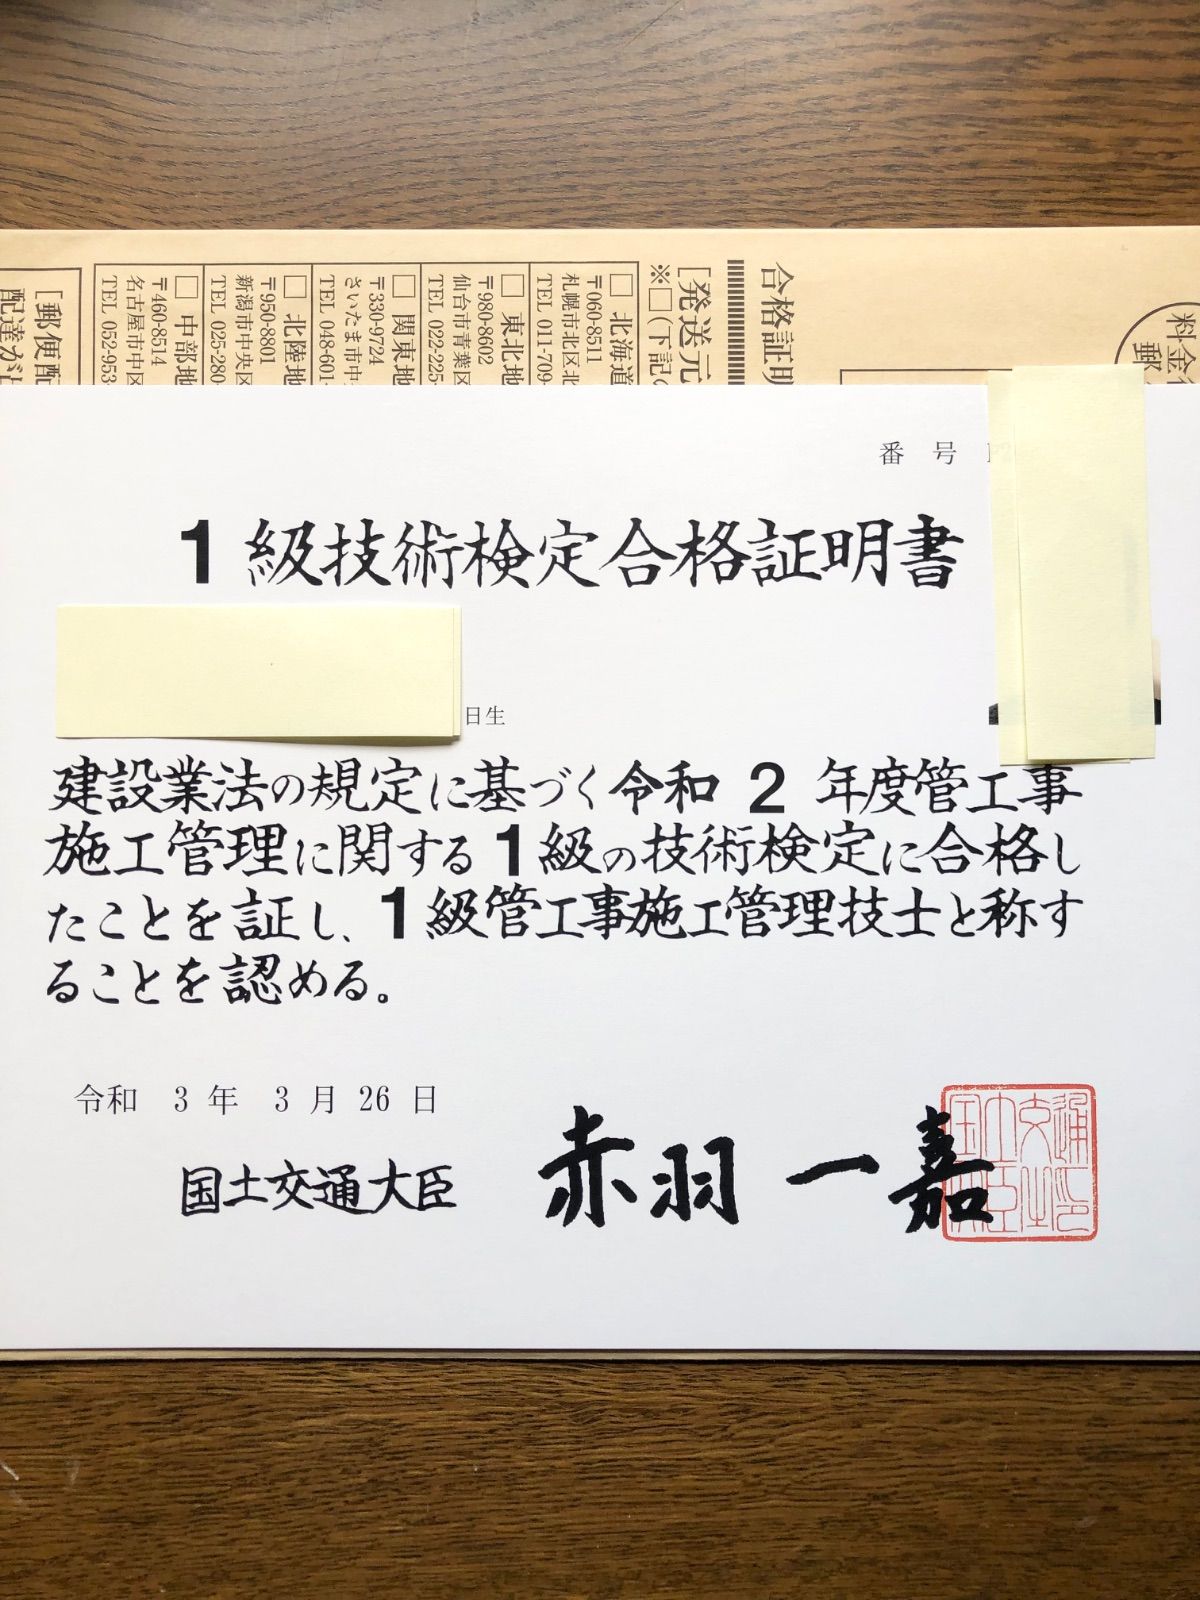 合格証明
[発送元
※□(下記の
□ 北海道
〒060-8511
札幌市北区北
TEL 011-709-
□ 東北地
〒980-8602
仙台市青葉区
TEL 022-225-
□ 関東地
〒330-9724
さいたま市中
TEL 048-601-
□ 北陸地
〒950-8801
新潟市中央区
TEL 025-280-
□ 中部地
〒460-8514
名古屋市中区
TEL 052-953-
[郵便配
料金
郵
番 号
1 級技術検定合格証明書
日生
建設業法の規定に基づく令和 2 年度管工事
施工管理に関する 1 級の技術検定に合格し
たことを証し、1 級管工事施工管理技士と称す
ることを認める。
令和 3 年 3 月 26 日
国土交通大臣 赤羽 一嘉